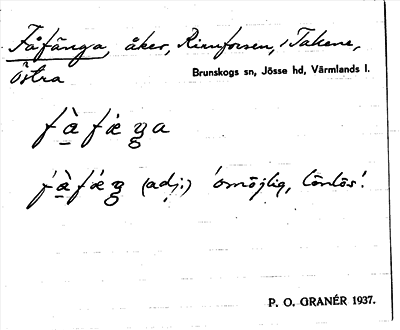 Fåfänga, åker, Rinnforsen, i Takene,
Östra
Brunskogs sn, Jösse hd, Värmlands l.
fàfæga
fàfæg (adj.) 'omöjlig, lönlös'.
P. O. GRANÉR 1937.